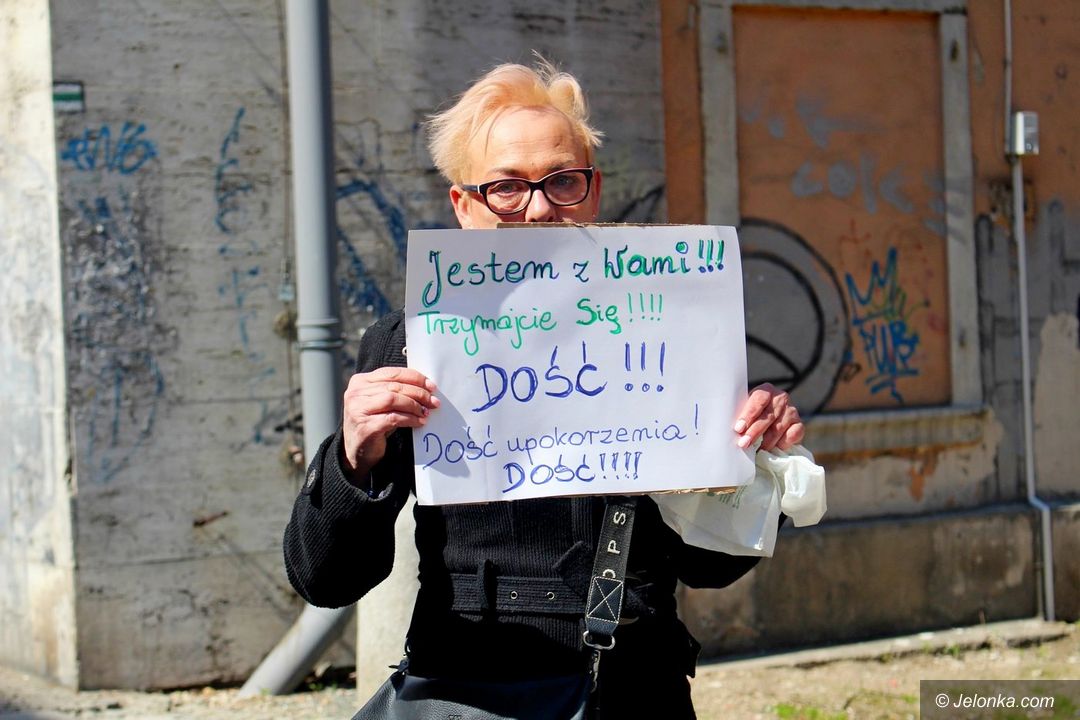 Jestem z Wami!!!
Trzymajcie Się!!!!
DOŚĆ!!!
Dość upokorzenia!
DOŚĆ!!!!
© Jelonka.com